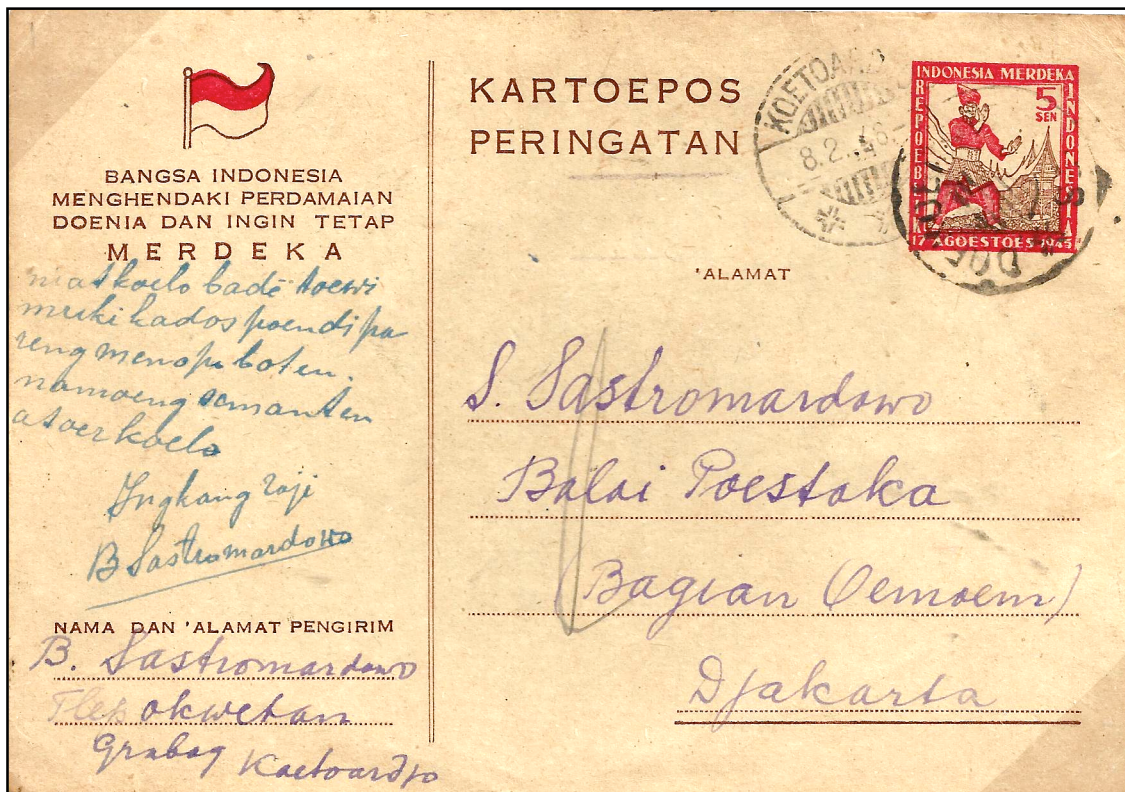 BANGSA INDONESIA
MENGHENDAKI PERDAMAIAN
DOENIA DAN INGIN TETAP
MERDEKA
niat koelo badé toewi
meski kados poendi pa
reng menopo boten.
namoeng semanten
atoer koelo
Ingkang raji
B Sastromardowo
NAMA DAN 'ALAMAT PENGIRIM
B. Sastromardowo
Tlepokwetan
Grabag Koetoardjo
KARTOEPOS
PERINGATAN
KOETOARDJO
8.2.46
INDONESIA MERDEKA
REPOEBLIK
INDONESIA
5
SEN
17 AGOESTOES 1945
'ALAMAT
S. Sastromardowo
Balai Poestaka
(Bagian Oemoem)
Djakarta